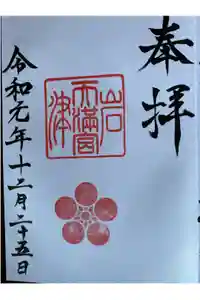 奉拝
岩津天満宮
令和元年十二月二十五日